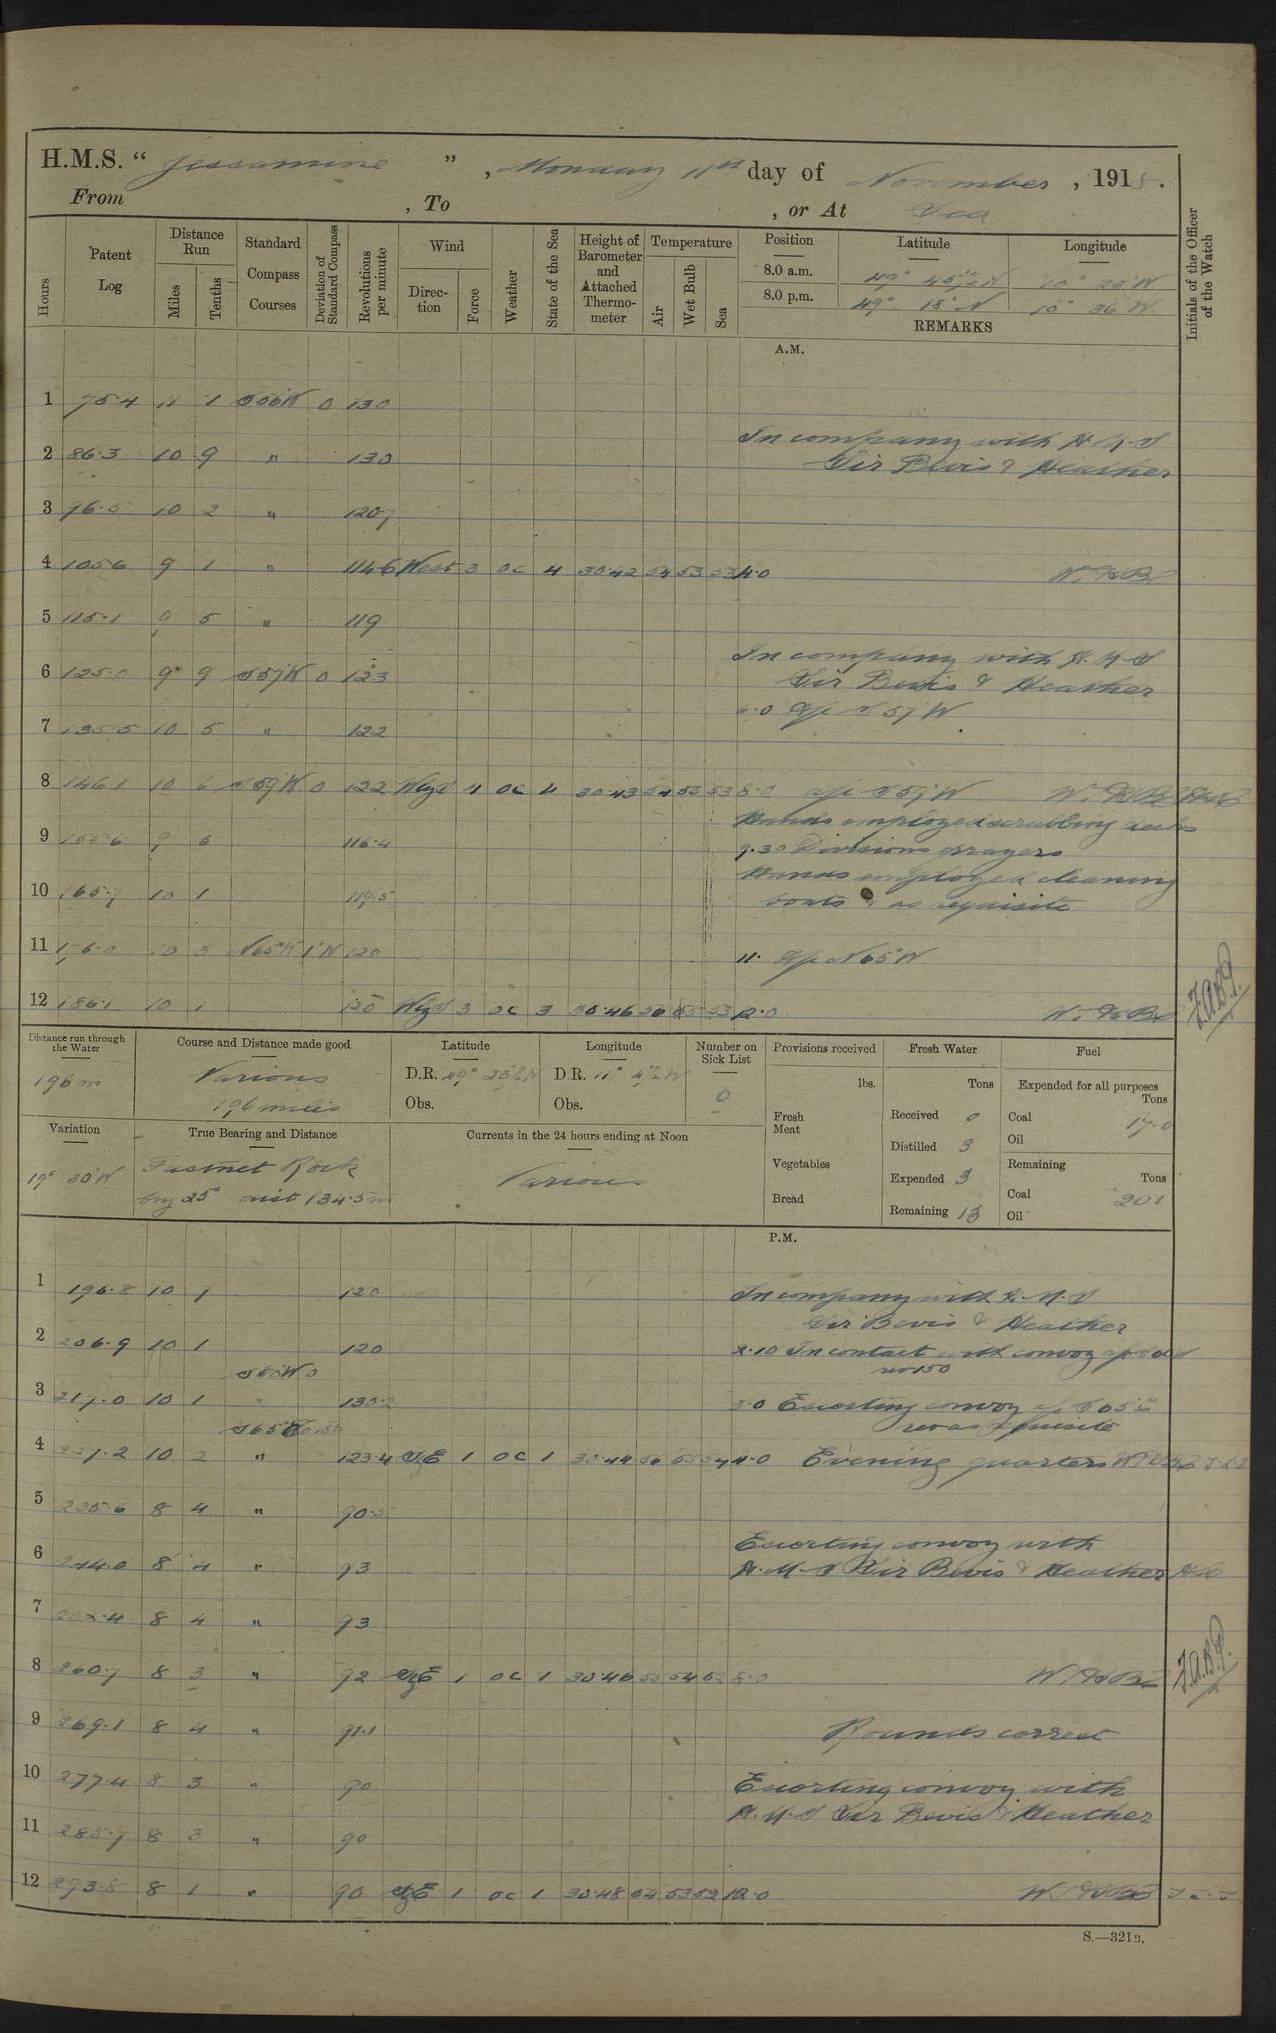 H.M.S. " Jessamine ", Monday 11th day of November, 191
From , To , or At Sea
Hours Patent Log Distance Run Miles Tenths Standard Compass Courses Deviation of Standard Compass Revolutions per minute Wind Direction Force Weather State of the Sea Height of Barometer and Attached Thermometer Temperature Air Wet Bulb Sea Position Latitude Longitude Initials of the Officer of the Watch
8.0 a.m.
8.0 p.m. 49° 18' N 10° 36' W
REMARKS
A.M.
1 75.4 11 1 0 130
In company with H.M.S
2 86.3 10 9 " 130 Sir Bevis & Heather
3 96.5 10 2 " 120.7
4 105.6 9 1 " 114.6 West 3 oc 4 30.42 54 53 53 4.0
5 115.1 9 5 " 119
In company with H.M.S
6 125.0 9 9 S 57 W 0 123 Sir Bevis & Heather
6.0 a/c S 57 W
7 135.5 10 5 " 122
8 146.1 10 6 S 59 W 0 122 4 oc 4 30.43 54 53 53 8.0 a/c S 59 W
Hands employed scrubbing decks
9 155.6 9 5 116.4 9.30 Divisions prayers
Hands employed cleaning
10 165.7 10 1 119.5 boats & as requisite
11 176.0 10 3 N 65 W 1 W 120 11. a/c N 65 W
12 186.1 10 1 120 3 oc 3 30.46 55 53 12.0
Distance run through the Water Course and Distance made good Latitude Longitude Number on Sick List Provisions received Fresh Water Fuel
196 m Various D.R. D.R. 0 lbs. Tons Expended for all purposes
196 miles Obs. Obs. Tons
Fresh Meat Received 0 Coal 17.0
Variation True Bearing and Distance Currents in the 24 hours ending at Noon
Distilled 3 Oil
19° 30' W Fastnet Rock Various Vegetables Expended 3 Remaining Tons
brg 25° dist 134.5 m Bread Remaining 13 Coal 201
Oil
P.M.
1 196.8 10 7 120 In company with H.M.S
Sir Bevis & Heather
2 206.9 10 1 120 2.10 In contact with convoy
rev 150
3 217.0 10 1 " 3.0 Escorting convoy
rev as requisite
4 227.2 10 2 " 123.4 1 oc 1 30.44 4.0 Evening quarters
5 235.6 8 4 " 90.5
Escorting convoy with
6 244.0 8 4 " 93 H.M.S Sir Bevis & Heather
7 252.4 8 4 " 93
8 260.7 8 3 " 92 1 oc 1 30.46 55 54 52 8.0
9 269.1 8 4 " 91.1 Rounds correct
10 277.4 8 3 " 90 Escorting convoy with
H.M.S Sir Bevis & Heather
11 285.7 8 3 " 90
12 293.8 8 1 " 90 1 oc 1 30.48 54 53 52 12.0
S.—321B.